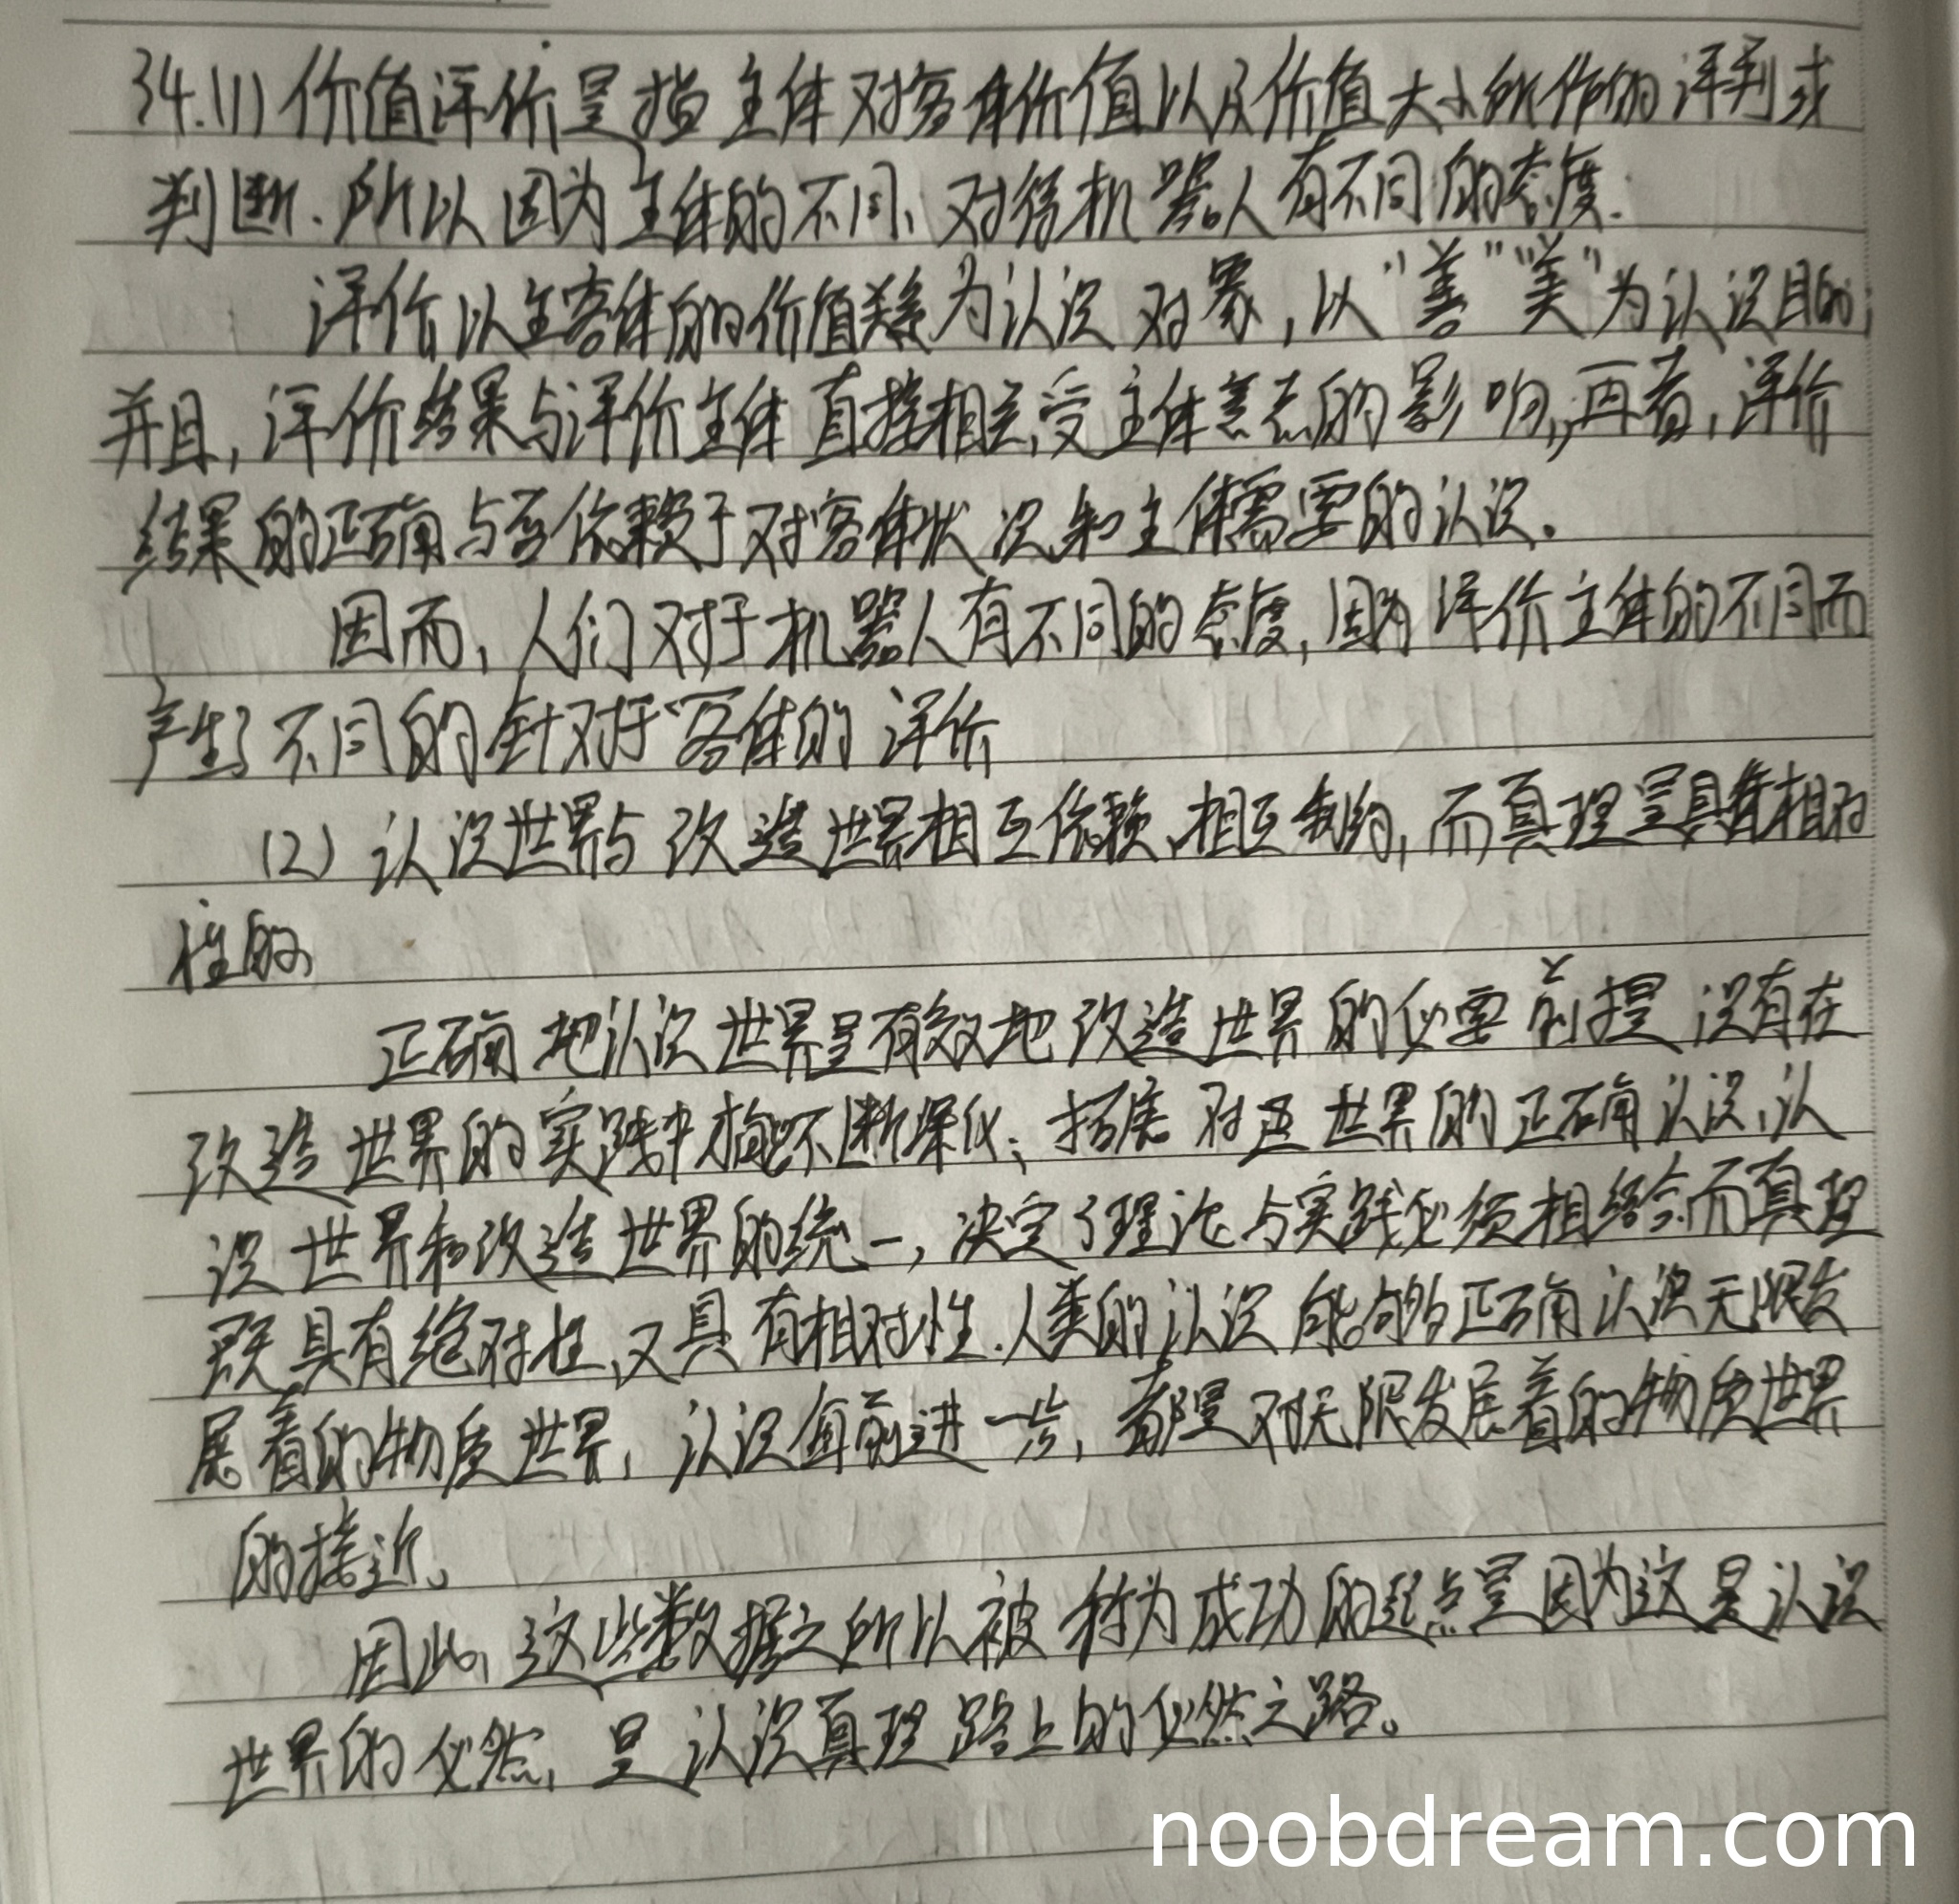 34.(1)价值评价是指主体对客体价值以及价值大小所作的评判或
判断、所以因为主体的不同、对待机器人有不同的态度.
评价以主客体的价值关系为认识对象,以"善""美"为认识目的;
并且,评价结果与评价主体直接相关,受主体意志的影响,再者,评价
结果的正确与否依赖于对客体状况和主体需要的认识。
因而,人们对于机器人有不同的态度,因为评价主体的不同而
产生了不同的针对于客体的评价
(2)认识世界与改造世界相互依赖、相互制约,而真理是具有相对
性的
正确地认识世界是有效地改造世界的必要前提 没有在
改造世界的实践中 不断深化、拓展对 世界的正确认识、认
识世界和改造世界的统一,决定了理论与实践必须相结合.而真理
既具有绝对性、又具有相对性.人类的认识能够正确认识无限发
展着的物质世界,认识每前进一步,都是对无限发展着的物质世界
的接近。
因此,这些数据之所以被称为成功的起点是因为这是认识
世界的必然,是认识真理路上的必然之路。
noobdream.com